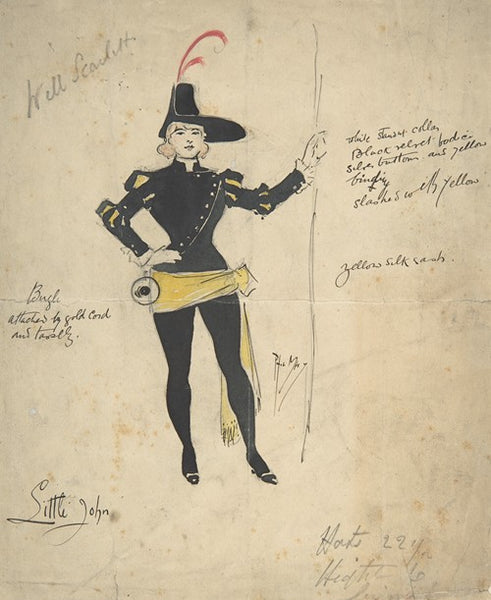 Will Scarlett
white stand collar
Black velvet bodice
silver buttons and yellow
binding &
slashed with yellow
yellow silk sash.
Bugle
attached by gold cord
and tassels.
Little John
Hat 22
Height 6